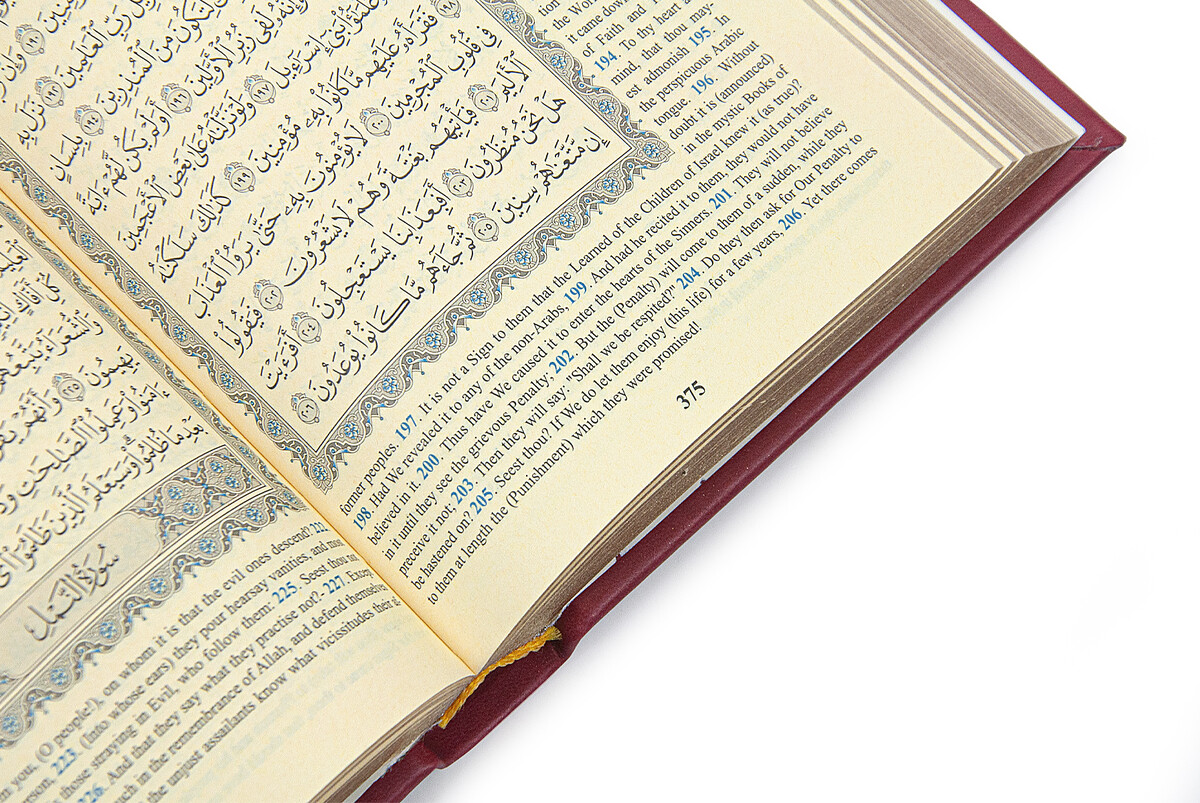 رَبِّ ٱلْعَٰلَمِينَ ١٩٢ نَزَلَ بِهِ
لِتَكُونَ مِنَ ٱلْمُنذِرِينَ ١٩٤ بِلِسَانٍ
وَإِنَّهُۥ لَفِى زُبُرِ ٱلْأَوَّلِينَ ١٩٦ أَوَلَمْ يَكُن لَّهُمْ ءَايَةً
عُلَمَٰٓؤُا۟ بَنِىٓ إِسْرَٰٓءِيلَ ١٩٧ وَلَوْ نَزَّلْنَٰهُ عَلَىٰ بَعْضِ ٱلْأَعْجَمِينَ
١٩٨ فَقَرَأَهُۥ عَلَيْهِم مَّا كَانُوا۟ بِهِۦ مُؤْمِنِينَ ١٩٩ كَذَٰلِكَ سَلَكْنَٰهُ
فِى قُلُوبِ ٱلْمُجْرِمِينَ ٢٠٠ لَا يُؤْمِنُونَ بِهِۦ حَتَّىٰ يَرَوُا۟ ٱلْعَذَابَ
ٱلْأَلِيمَ ٢٠١ فَيَأْتِيَهُم بَغْتَةً وَهُمْ لَا يَشْعُرُونَ ٢٠٢ فَيَقُولُوا۟
هَلْ نَحْنُ مُنظَرُونَ ٢٠٣ أَفَبِعَذَابِنَا يَسْتَعْجِلُونَ ٢٠٤ أَفَرَءَيْتَ
إِن مَّتَّعْنَٰهُمْ سِنِينَ ٢٠٥ ثُمَّ جَآءَهُم مَّا كَانُوا۟ يُوعَدُونَ ٢٠٦
tion
the Wo
it came down
of Faith and
194. To thy heart a
mind, that thou may-
est admonish 195. In
the perspicuous Arabic
tongue. 196. Without
doubt it is (announced)
in the mystic Books of
former peoples. 197. It is not a Sign to them that the Learned of the Children of Israel knew it (as true)?
198. Had We revealed it to any of the non-Arabs, 199. And had he recited it to them, they would not have
believed in it. 200. Thus have We caused it to enter the hearts of the Sinners. 201. They will not believe
in it until they see the grievous Penalty; 202. But the (Penalty) will come to them of a sudden, while they
preceive it not; 203. Then they will say: "Shall we be respited?" 204. Do they then ask for Our Penalty to
be hastened on? 205. Seest thou? If We do let them enjoy (this life) for a few years, 206. Yet there comes
to them at length the (Punishment) which they were promised!
375
وَٱلشُّعَرَآءُ يَتَّبِعُهُمُ
يَهِيمُونَ ٢٢٥ وَأَنَّهُمْ
ءَامَنُوا۟ وَعَمِلُوا۟ ٱلصَّٰلِحَٰتِ
بَعْدِ مَا ظُلِمُوا۟ وَسَيَعْلَمُ ٱلَّذِينَ ظَلَمُوٓا۟
سُورَةُ النَّمْلِ
you, (O people!), on whom it is that the evil ones descend?
223. (Into whose ears) they pour hearsay vanities, and
those straying in Evil, who follow them: 225. Seest thou
226. And that they say what they practise not?. 227. Except
in the remembrance of Allah, and defend themselves
the unjust assailants know what vicissitudes their